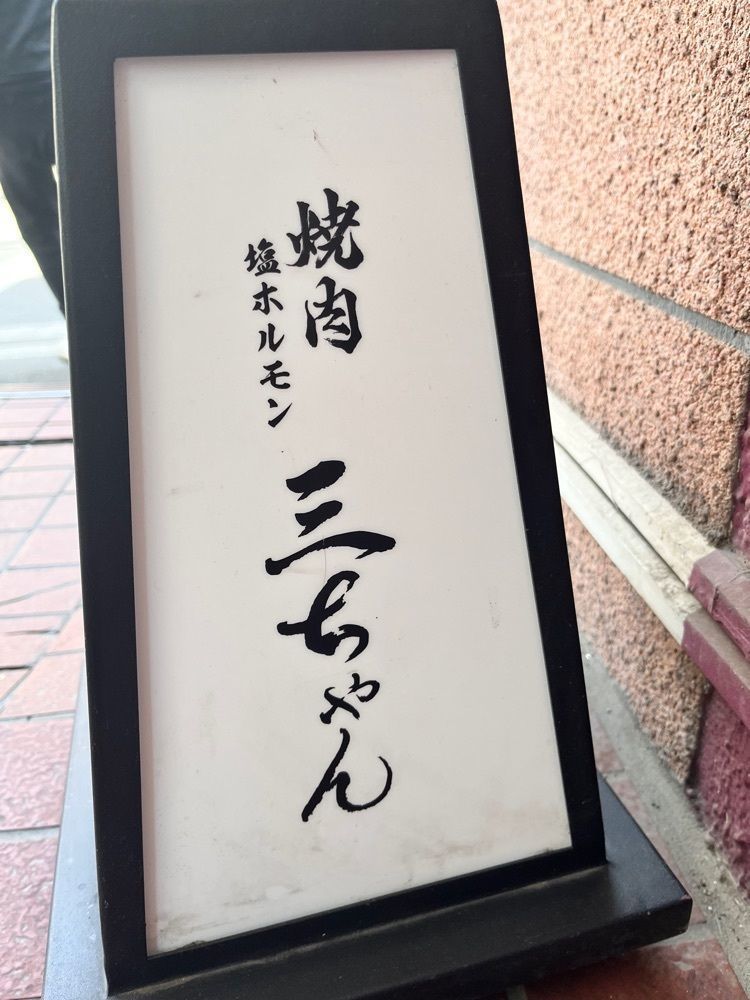 焼肉
塩ホルモン
三ちゃん